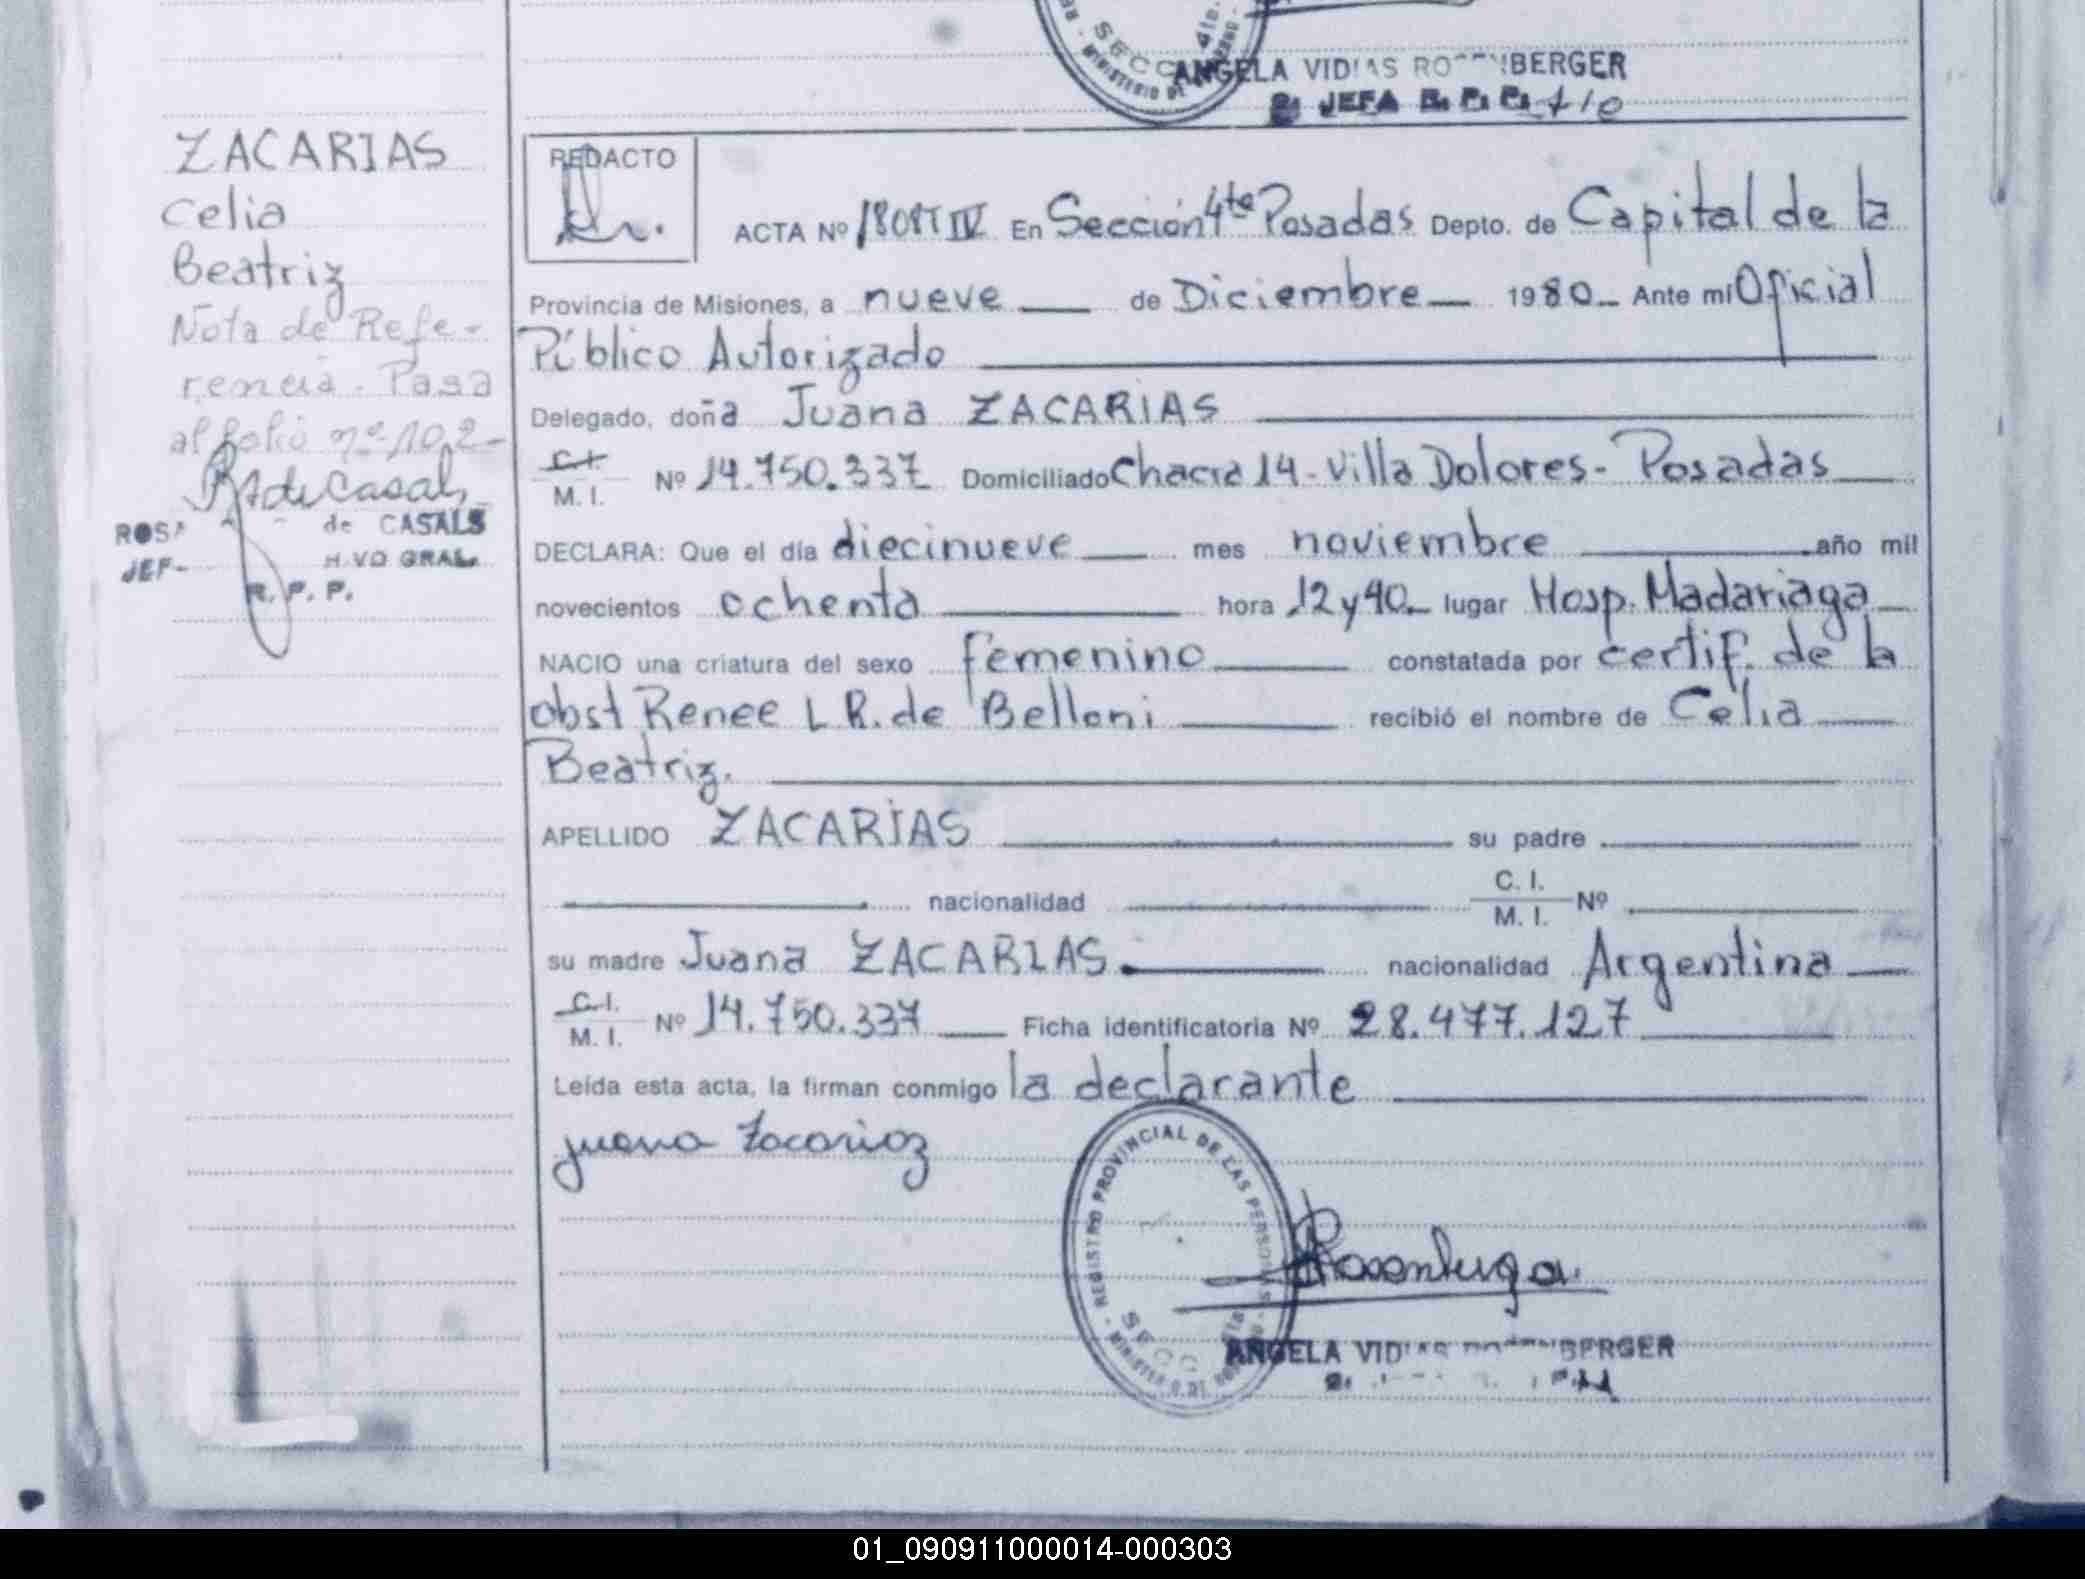 SECC
4ta.
MINISTERIO DE
ANGELA VIDIAS RO BERGER
JEFA
ZACARIAS
Celia
Beatriz
Nota de Refe-
rencia. Pasa
al folio nº 102-
RA de Casals
ROSA de CASALS
JEF- H.VO GRAL.
R. P. P.
REDACTO
ACTA Nº 1808T IV En Sección 4ta Posadas Depto. de Capital de la
Provincia de Misiones, a nueve de Diciembre 1980 Ante mi Oficial
Público Autorizado
Delegado, doña Juana ZACARIAS
C.I.
M. I. Nº 14.750.337 Domiciliado Chacra 14-Villa Dolores-Posadas
DECLARA: Que el día diecinueve mes noviembre año mil
novecientos ochenta hora 12 y 40 lugar Hosp. Madariaga
NACIO una criatura del sexo femenino constatada por certif. de la
obst Renee L R. de Belloni recibió el nombre de Celia
Beatriz.
APELLIDO ZACARIAS su padre
nacionalidad C. I.
M. I. Nº
su madre Juana ZACARIAS nacionalidad Argentina
C.I.
M. I. Nº 14.750.337 Ficha identificatoria Nº 28.477.127
Leída esta acta, la firman conmigo la declarante
Juana Zacariaz
REGISTRO PROVINCIAL DE LAS PERSONAS
SECC 4ta
MINISTERIO DE
ANGELA VIDIAS BERGER
01_090911000014-000303